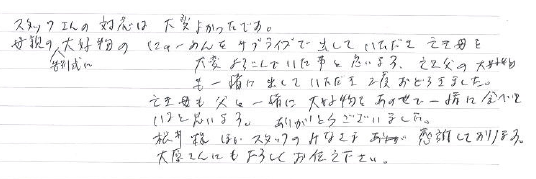 スタッフさんの対応は 大変よかったです。
母親の大好物の にゅーめんをサプライズで出していただき 亡き母も
告別式に
大変よろこんでいた事と思います。亡き父の大好物
も一緒に出していただき2度おどろきました。
亡き母も父と一緒に大好物をあわせて一緒に食べて
いると思います。ありがとうございました。
松井様ほかスタッフのみなさま 感謝しております。
大原さんにもよろしくお伝え下さい。